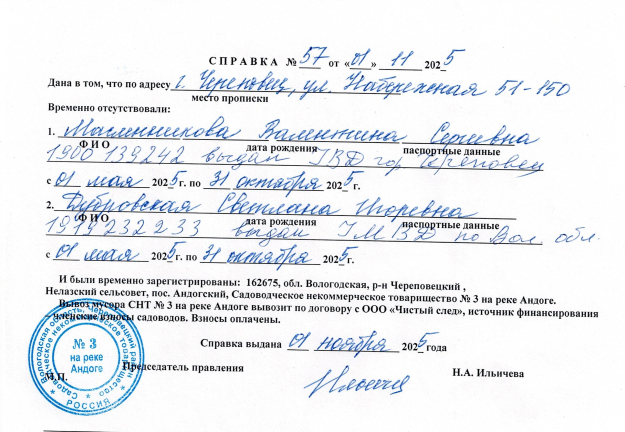 СПРАВКА № 57 от «01» 11 2025
Дана в том, что по адресу г. Череповец, ул. Набережная 51-150
место прописки
Временно отсутствовали:
1. Масленникова Валентина Сергеевна
Ф И О дата рождения паспортные данные
1900 139242 выдан УВД гор. Череповец
с 01 мая 2025 г. по 31 октября 2025 г.
2. Дубровская Светлана Игоревна
Ф И О дата рождения паспортные данные
1919 232233 выдан УМВД по Вол. обл.
с 01 мая 2025 г. по 31 октября 2025 г.
И были временно зарегистрированы: 162675, обл. Вологодская, р-н Череповецкий ,
Нелазский сельсовет, пос. Андогский, Садоводческое некоммерческое товарищество № 3 на реке Андоге.
Вывоз мусора СНТ № 3 на реке Андоге вывозит по договору с ООО «Чистый след», источник финансирования
- членские взносы садоводов. Взносы оплачены.
Справка выдана 01 ноября 2025 года
Председатель правления Н.А. Ильичева
М.П.
Вологодская область, Череповецкий район
Садоводческое некоммерческое товарищество
№ 3
на реке
Андоге
* РОССИЯ *